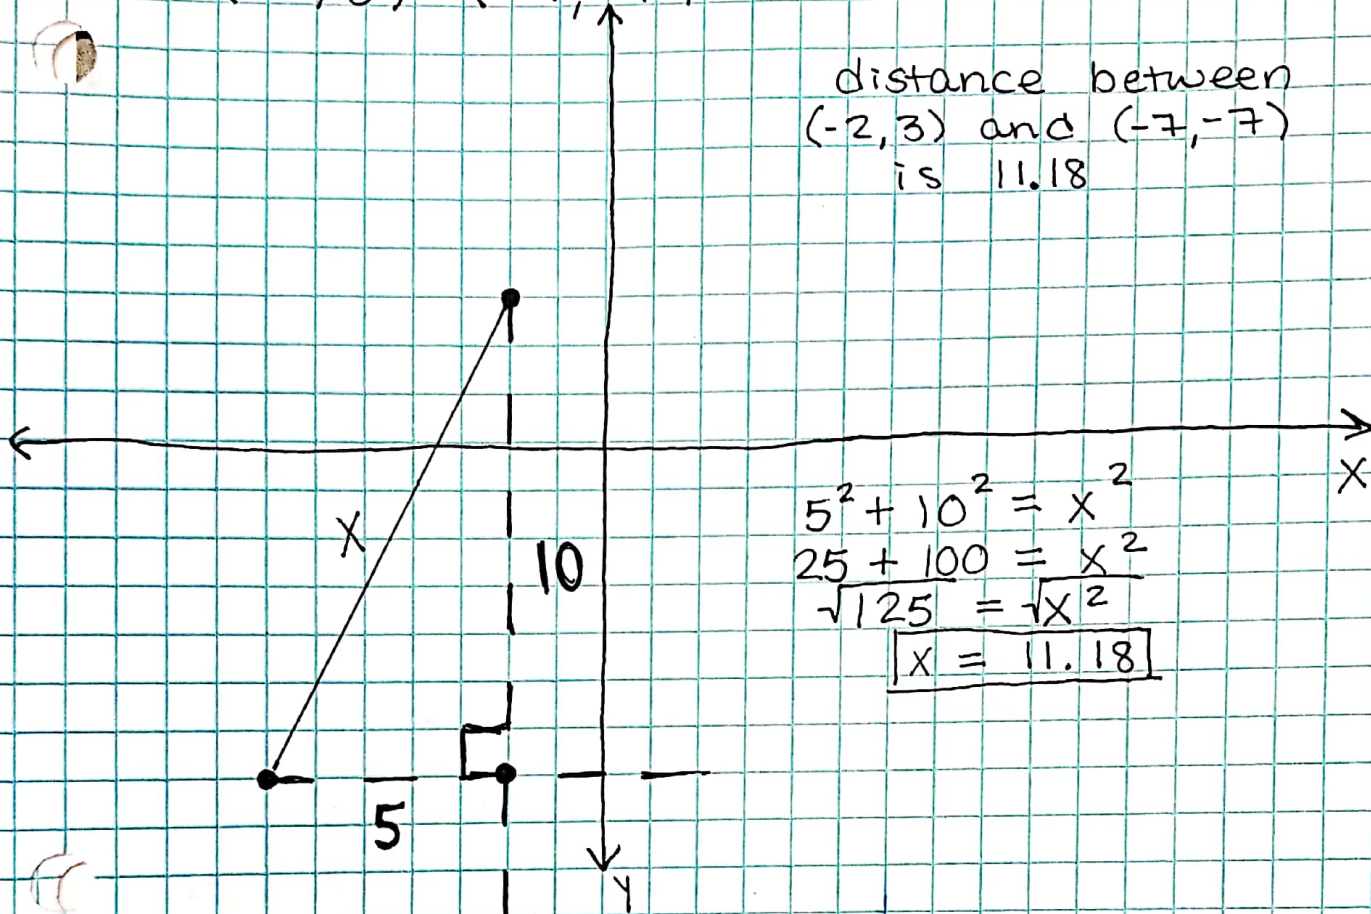 distance between
(-2,3) and (-7,-7)
is 11.18
X
X
10
5² + 10² = x²
25 + 100 = x²
√125 = √x²
x = 11.18
5
Y